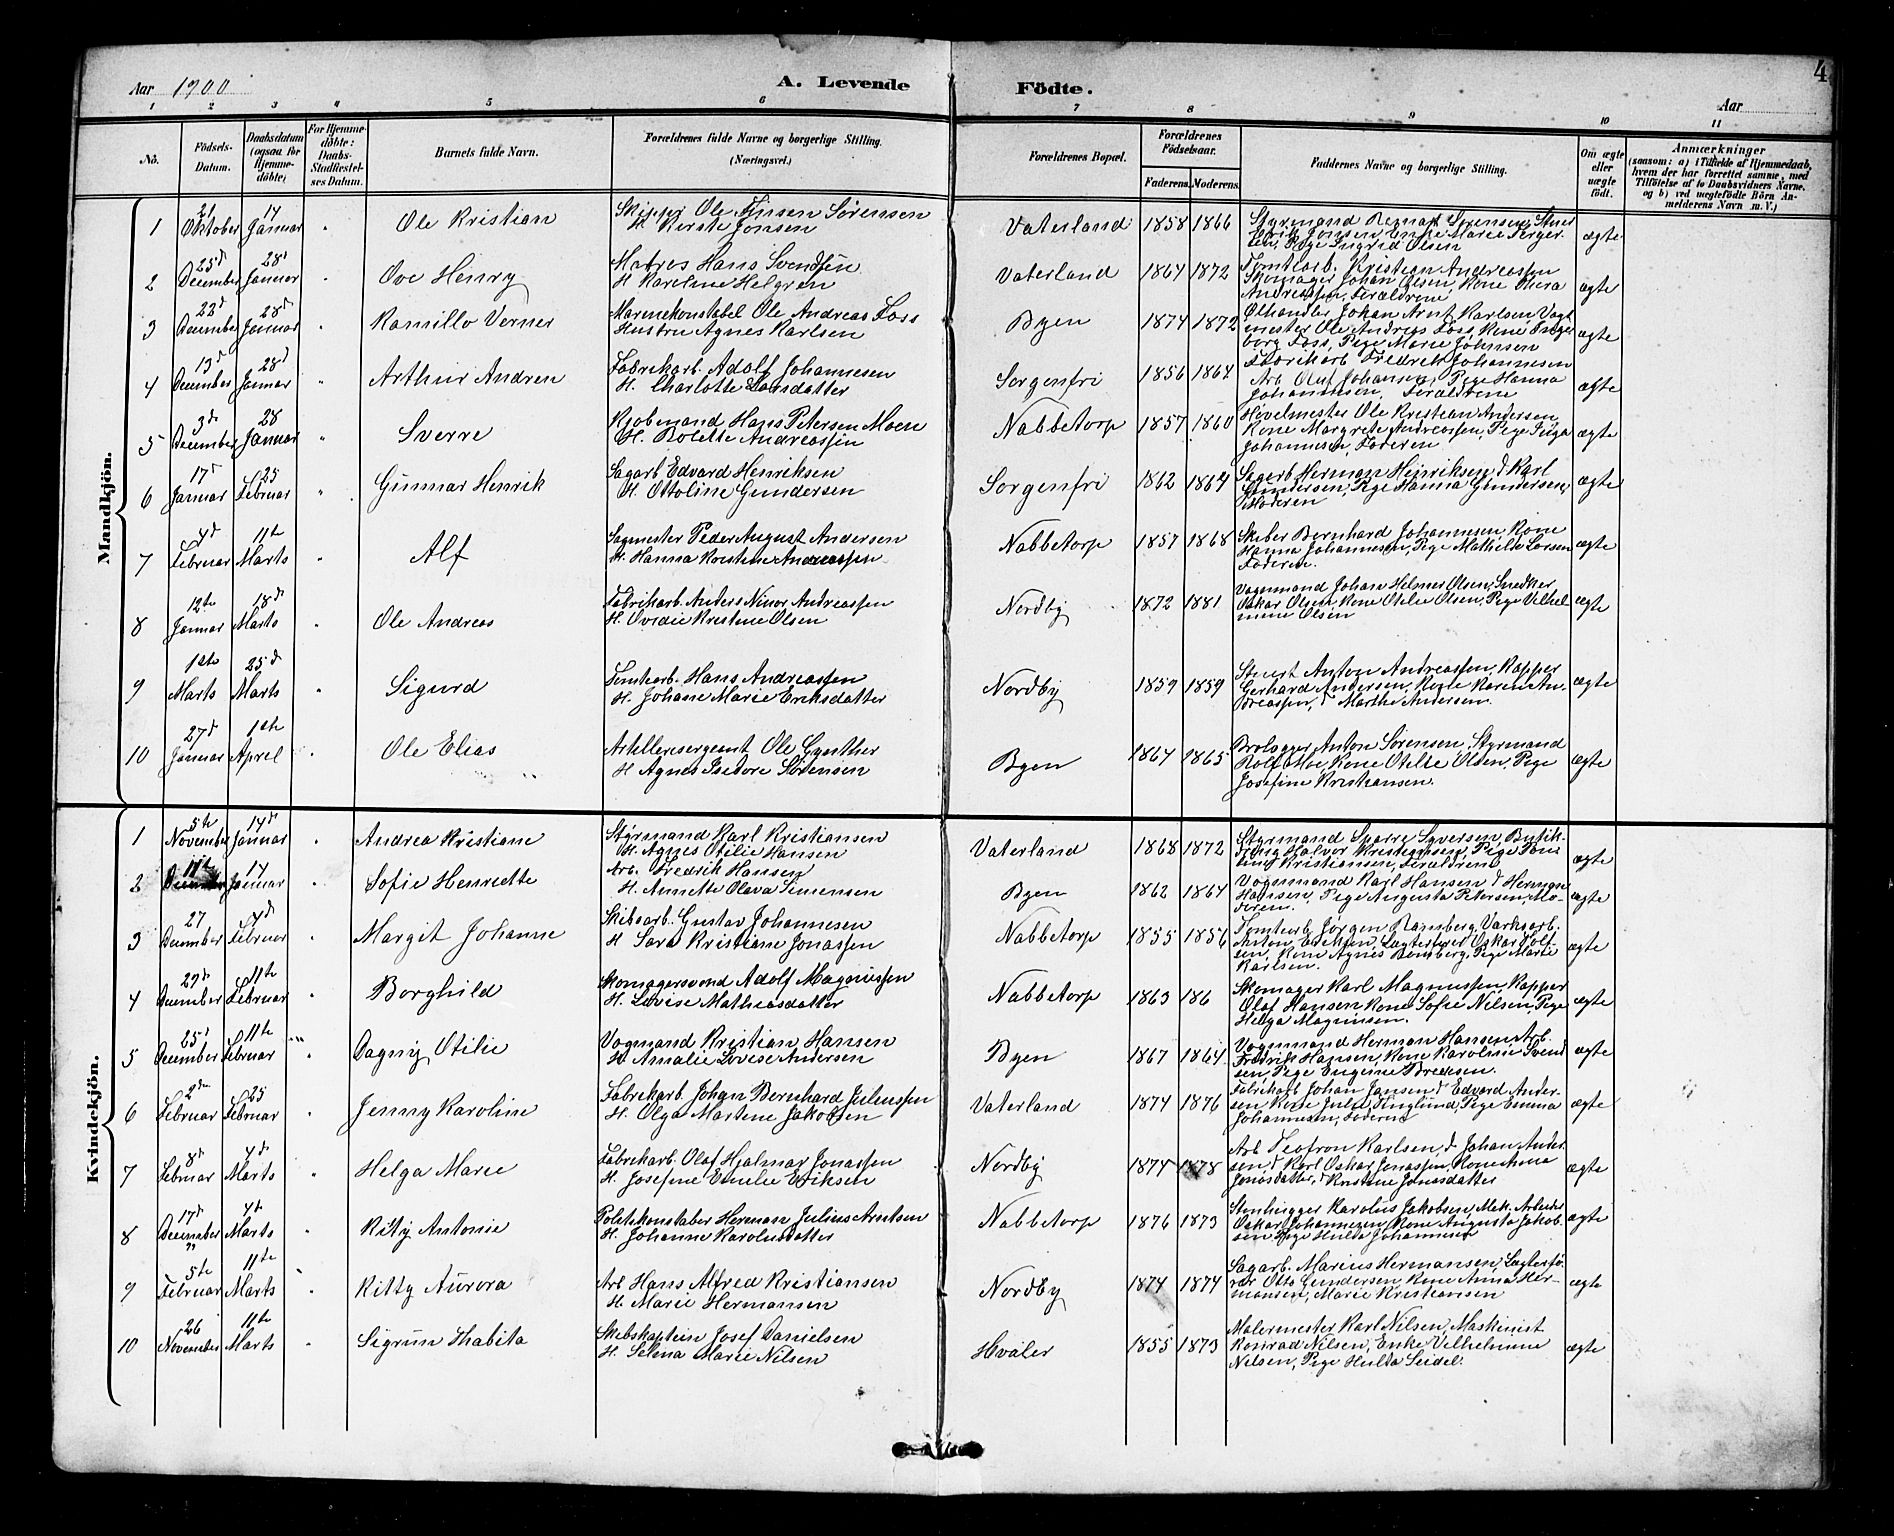 Aar 1900
A. Levende Födte.
Aar
4
1 2 3 4 5 6 7 8 9 10 11
No.
Födsels-Datum.
Daabsdatum (ogsaa for Hjemme-döbte)
For Hjemme-döbte: Daabs-Stadfestel-ses Datum.
Barnets fulde Navn.
Forældrenes fulde Navne og borgerlige Stilling.
(Næringsvei.)
Forældrenes Bopæl.
Forældrenes Födselsaar.
Faderens. Moderens.
Faddernes Navne og borgerlige Stilling.
Om ægte eller uægte födt.
Anmærkninger
(saasom: a) i Tilfælde af Hjemmedaab,
hvem der har forrettet samme, med
Tilföielse af to Daabsvidners Navne.
og b) ved uægtefödte Börn An-
melderens Navn m. V.)
Mandkjön.
1 21 Oktober 14 Januar " Ole Kristian
Skipper Ole Jensen Sørensen
H. Kerste Jonsen
Vaterland 1858 1866
Styrmand Sørensen,
Erik Jonsen, Enke Marie
Pige Ingrid Olsen
ægte
2 25d December 28d Januar " Ove Henry
Matros Hans Svendsen
H. Kareline Helgren
Vaterland 1864 1872
Tomtearb. Kristian Andreassen
Skomager Johan Olsen, Kone Thora
Andreassen, Forældrene
ægte
3 22d December 28d Januar " Kamillo Verner
Marinekonstabel Ole Andreas Foss
Hustru Agnes Karlsen
Byen 1874 1872
Ølhandler Johan Arnt Karlsen, Vagt
mester Ole Andreas Foss, Kone Inge
borg Foss, Pige Marie Johnsen
ægte
4 13d December 28d Januar " Arthur Andren
Fabrikarb. Adolf Johannesen
H. Charlotte Larsdatter
Sorgenfri 1856 1864
Fabrikarb. Fredrik Johannesen
Arb. Oluf Johansen, Pige Hanna
Johannesen, Forældrene
ægte
5 3d December 28 Januar " Sverre
Kjøbmand Hans Petersen Moen
H. Bolette Andreassen
Nabbetorp 1857 1860
Høvelmester Ole Kristian Andersen,
Kone Margrete Andreassen, Pige Inga
Johannesen, Faderen
ægte
6 17d Januar 25 Februar " Gunnar Henrik
Sagarb. Edvard Henriksen
H. Ottoline Gundersen
Sorgenfri 1862 1864
Sagarb. Herman Henriksen, d Karl
Gundersen, Pige Hanna Gundersen,
Moderen
ægte
7 4d Februar 11te Marts " Alf
Sagmester Peder August Andersen
H. Hanna Kristine Andreassen
Nabbetorp 1857 1868
Skiber Bernhard Johannesen, Kone
Hanna Johannesen, Pige Mathilde Larsen
Faderen.
ægte
8 12te Januar 18d Marts " Ole Andreas
Fabrikarb. Anders Ninor Andreassen
H. Ovidie Kristine Olsen
Nordby 1872 1881
Vognmand Johan Helmer Olsen, Snedker
Oskar Olsen, Kone Otilie Olsen, Pige Vilhel
mine Olsen
ægte
9 1ste Marts 25d Marts " Sigurd
Tomtearb. Hans Andreassen
H. Johane Marie Eriksdatter
Nordby 1859 1859
Stuert Anton Andreassen, Kapper
Gerhard Andersen, Kone Karen An-
dreassen, d Marthe Andersen.
ægte
10 27d Januar 1ste April " Ole Elias
Artillerisergeant Ole Gynther
H. Agnes Isidore Sørensen
Byen 1864 1865
Brolegger Anton Sørensen, Styrmand
Rolf Moe, Kone Otilde Olsen, Pige
Josefine Kristiansen.
ægte
Kvindekjön.
1 5te November 14d Januar " Andrea Kristiane
Styrmand Karl Kristiansen
H. Agnes Otilie Hansen
Vaterland 1868 1872
Styrmand Sverre Syversen, Butik-
Halvor Kristiansen, Pige
Kristiansen, Forældrene
ægte
2 11te December 14 Januar " Sofie Henriette
Arb. Fredrik Hansen
H. Annette Olava Simensen
Byen 1862 1864
Vognmand Karl Hansen, d Herman
Hansen, Pige Augusta Petersen, Mo-
deren.
ægte
3 27 December 4d Februar " Margit Johanne
Skibsarb. Gustav Johannesen
H. Sara Kristiane Jonassen
Nabbetorp 1855 1856
Tomtearb. Jørgen Ramberg, Verksarb.
Anton Eriksen, Lægterfører Oskar
sen, Kone Agnes Pige Marie
Karlsen.
ægte
4 29d December 11te Februar " Borghild
Skomagersvend Adolf Magnussen
H. Lovise Mathiasdatter
Nabbetorp 1863 186
Skomager Karl Magnussen, Kapper
Olaf Hansen, Kone Sofie Nilsen, Pige
Helga Magnusen.
ægte
5 25d December 11te Februar " Dagny Otilie
Vogmand Kristian Hansen
H. Amalie Lovise Andersen
Byen 1867 1864
Vognmand Herman Hansen, Arb.
Fredrik Hansen, Kone Karoline Svend
sen, Pige Eugine Bredesen.
ægte
6 2den Februar 25 Februar " Jenny Karoline
Fabrikarb. Johan Bernhard Juliussen
H. Olga Martine Jakobsen
Vaterland 1874 1876
Fabrikarb. Johan Jansen, d Edvard Ander-
sen, Kone Julie Pige Emma
Johannesen, Faderen
ægte
7 8d Februar 4d Marts " Helga Marie
Fabrikarb. Olaf Hjalmar Jonassen
H. Josefine Emilie Eriksen
Nordby 1874 1878
Arb. Teofron Karlsen, d Johan Ander
sen, d Karl Oskar Jonassen, Kone Anna
Jonasdatter, d Kristine Jonasdatter
ægte
8 17d December 4d Marts " Kitty Antonie
Politikonstabel Herman Julius Arntsen
H. Johanne Karolusdatter
Nabbetorp 1876 1873
Stenhugger Karolus Jakobsen, Mek. Arbeider
Oskar Johannesen, Kone Augusta Jakob
sen, Pige Hulda Johannesen
ægte
9 5te Februar 11te Marts " Kitty Aurora
Arb. Hans Alfred Kristiansen
H. Marie Hermansen
Nordby 1874 1874
Sagarb. Marius Hermansen, Lægterfø-
rer Otto Gundersen, Kone Anna Her-
mansen, Marie Kristiansen
ægte
10 26 November 11te Marts " Sigrun Thabita
Skibskaptein Josef Danielsen
H. Selina Marie Nilsen
Hvaler 1855 1873
Malermester Karl Nilsen, Maskinist
Konrad Nilsen, Enke Vilhelmine
Nilsen, Pige Hulda Seidel.
ægte